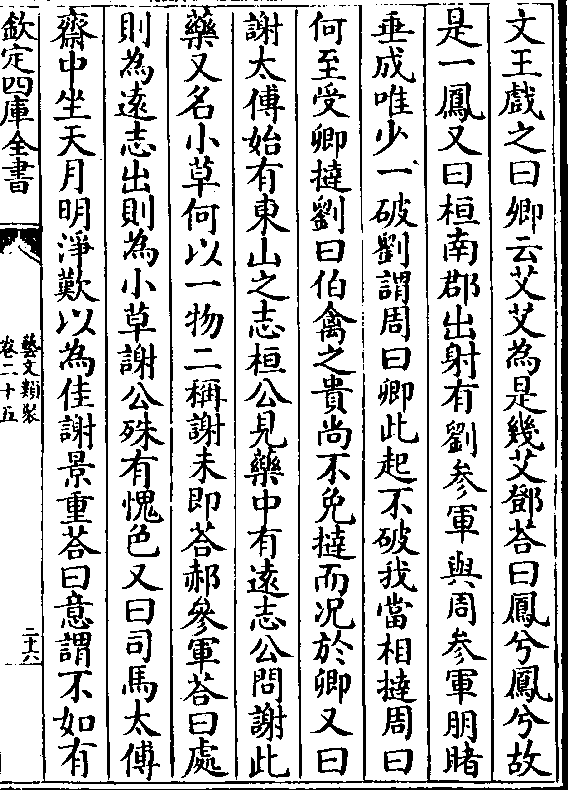 文王戲之曰卿云艾艾為是幾艾鄧荅曰鳳兮鳳兮故
是一鳳又曰桓南郡出射有劉参軍與周参軍朋賭
垂成唯少一破劉謂周曰卿此起不破我當相撻周曰
何至受卿撻劉曰伯禽之貴尚不免撻而况於卿又曰
謝太傅始有東山之志桓公見藥中有遠志公問謝此
藥又名小草何以一物二稱謝未即荅郝參軍荅曰處
則為遠志出則為小草謝公殊有愧色又曰司馬太傅
齋中坐天月明淨歎以為佳謝景重荅曰意謂不如有
欽定四庫全書
藝文類聚
卷二十五
二十六